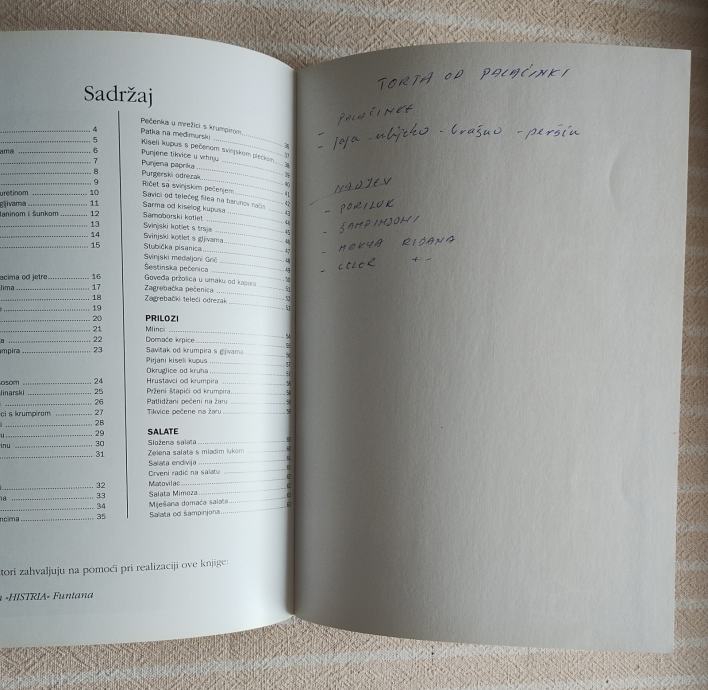 Sadržaj
4
5
ama 6
7
8
9
uretinom 10
gljivama 11
laninom i šunkom 12
13
14
15
acima od jetre 16
lima 17
18
19
20
21
22
mpira 23
osom 24
linarski 25
26
ci s krumpirom 27
28
29
inu 30
31
32
33
34
ncima 35
Pečenka u mrežici s krumpirom 36
Patka na međimurski 37
Kiseli kupus s pečenom svinjskom plećkom 38
Punjene tikvice u vrhnju 39
Punjena paprika 40
Purgerski odrezak 41
Ričet sa svinjskim pečenjem 42
Savici od telećeg filea na barunov način 43
Sarma od kiselog kupusa 44
Samoborski kotlet 45
Svinjski kotlet s trsja 46
Svinjski kotlet s gljivama 47
Stubička pisanica 48
Svinjski medaljoni Grič 49
Šestinska pečenica 50
Goveđa pržolica u umaku od kapara 51
Zagrebačka pečenica 52
Zagrebački teleći odrezak 53
PRILOZI
Mlinci
Domaće krpice
Savitak od krumpira s gljivama
Pirjani kiseli kupus
Okruglice od kruha
Hrustavci od krumpira
Prženi štapići od krumpira
Patlidžani pečeni na žaru
Tikvice pečene na žaru
SALATE
Složena salata
Zelena salata s mladim lukom
Salata endivija
Crveni radić na salatu
Matovilac
Salata Mimoza
Miješana domaća salata
Salata od šampinjona
tori zahvaljuju na pomoći pri realizaciji ove knjige:
«HISTRIA» Funtana
TORTA OD PALAČINKI
- PALAČINKE
- jaja - mlijeko - brašno - peršin
NADJEV
- PORILUK
- ŠAMPINJONI
- MRKVA RIBANA
- CELER + -